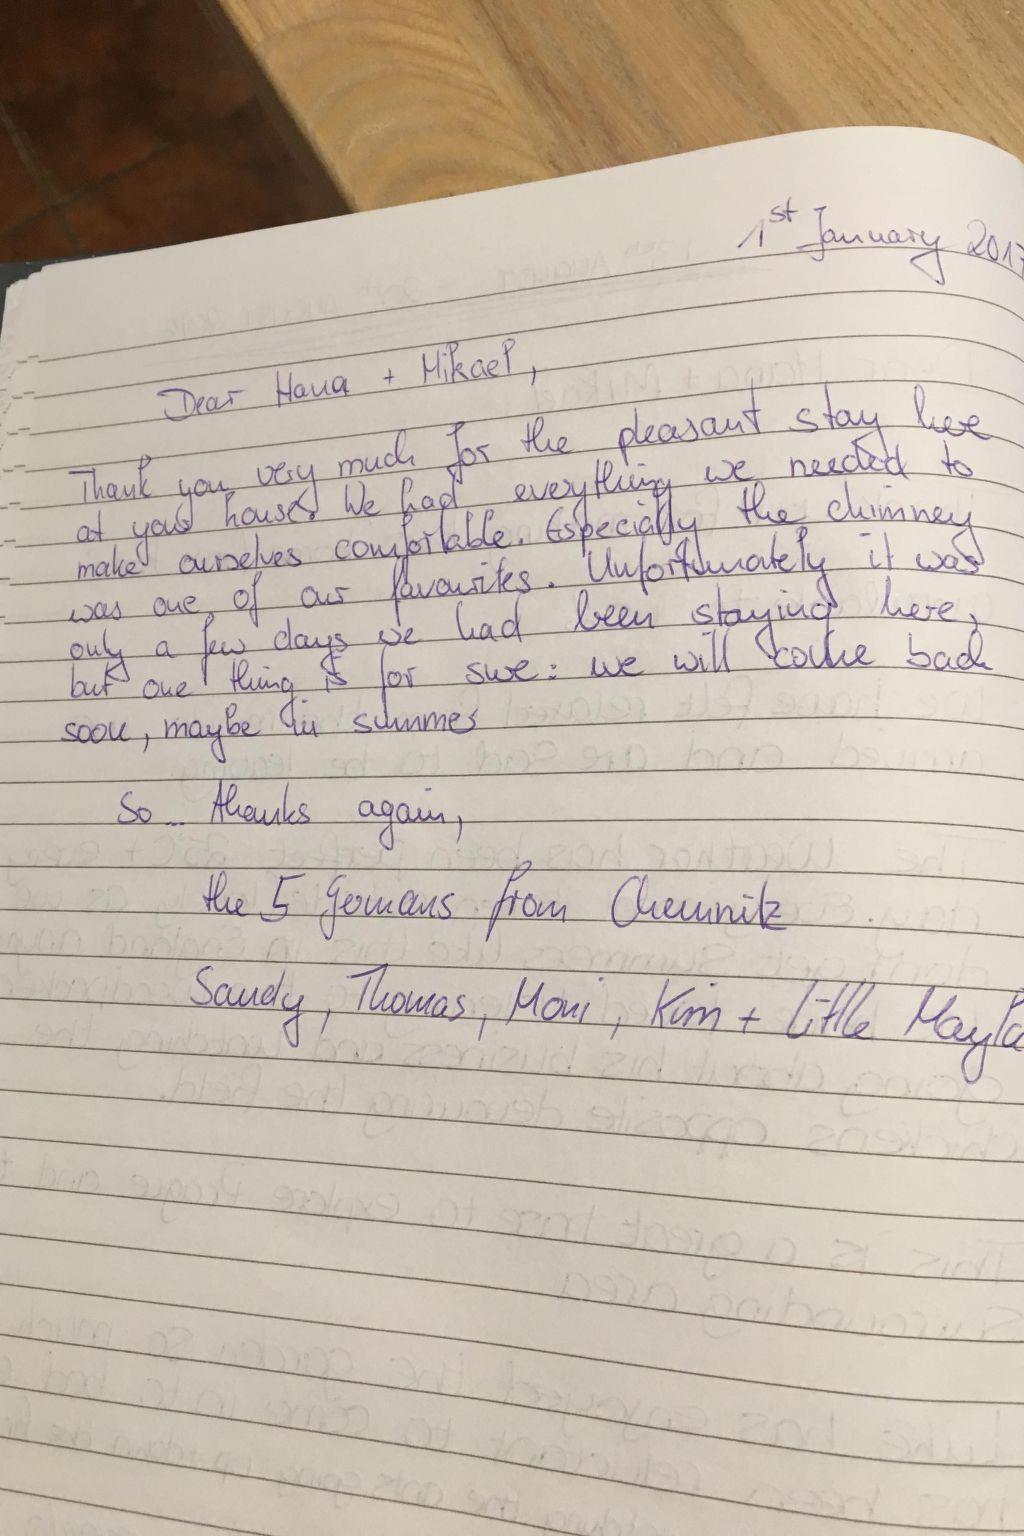 1st January 2017
Dear Hana + Mikael,
Thank you very much for the pleasant stay here
at your house. We had everything we needed to
make ourselves comfortable. Especially the chimney
was one of our favourites. Unfortunately it was
only a few days we had been staying here,
but one thing is for sure: we will come back
soon, maybe in summer
So... thanks again,
the 5 Germans from Chemnitz
Sandy, Thomas, Moni, Kim + little Mayla